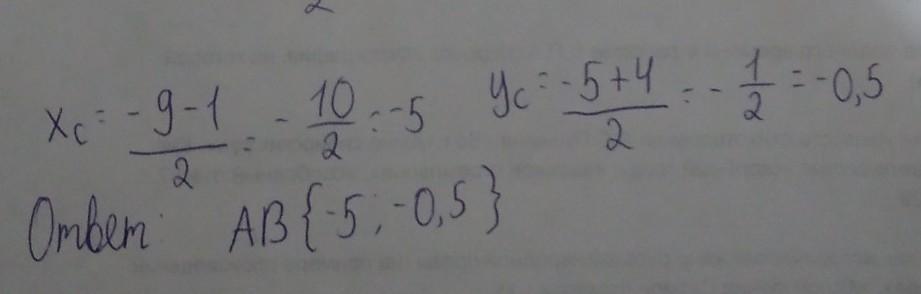 x_c = (-9-1)/2 = -10/2 = -5 y_c = (-5+4)/2 = -1/2 = -0,5
Ответ: AB{-5; -0,5}